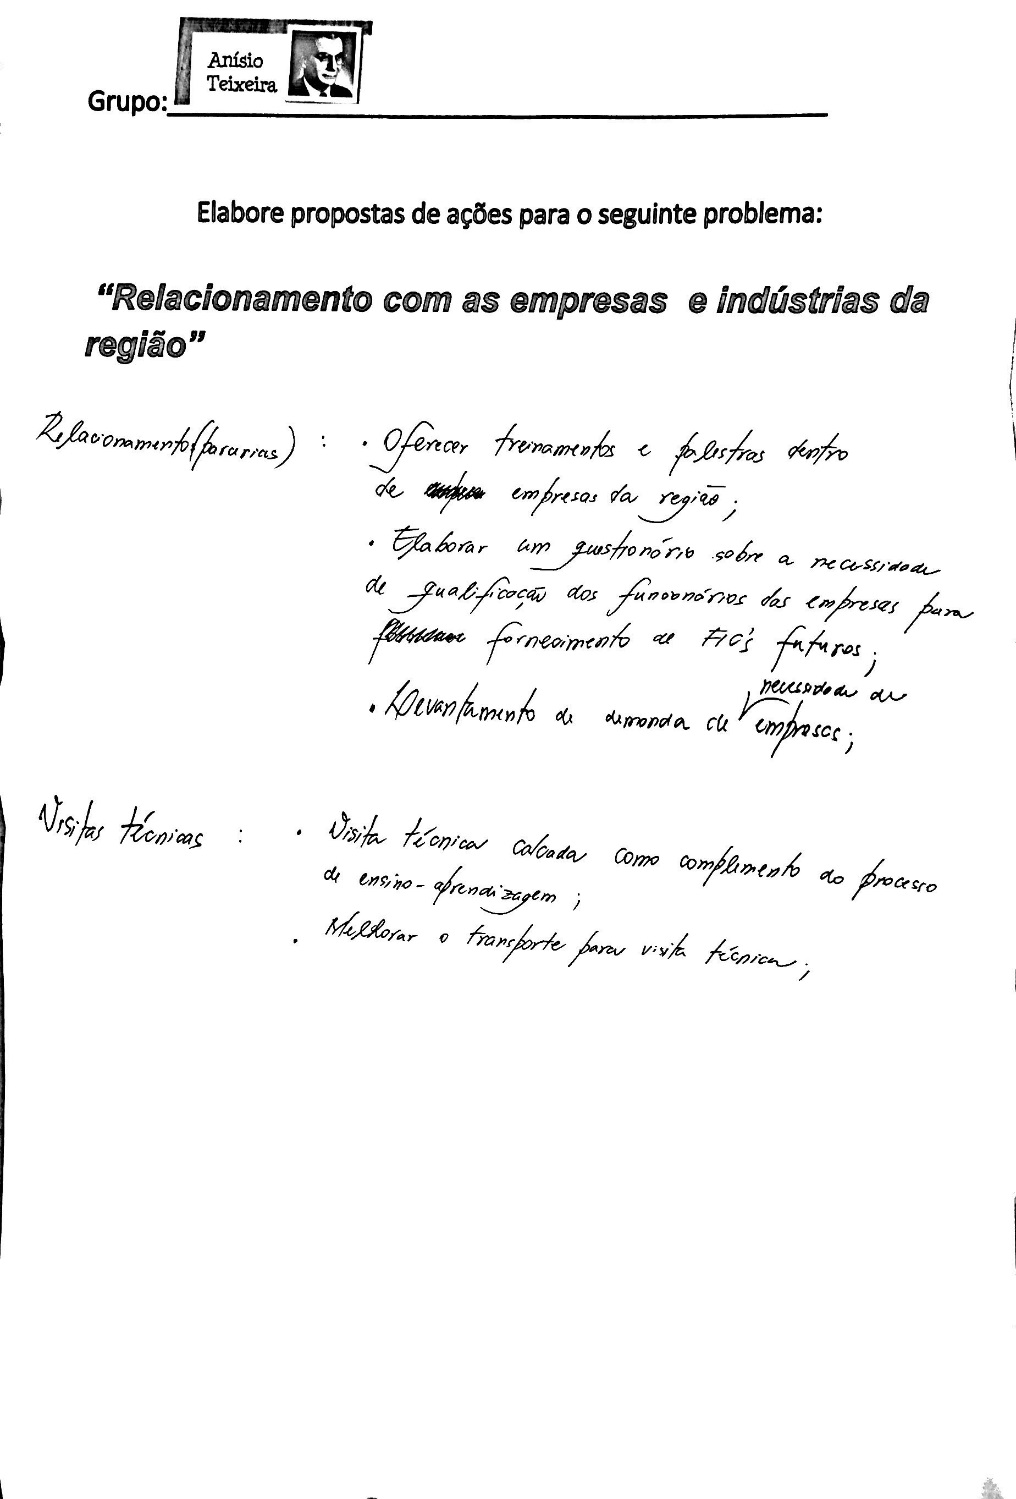 Anísio
Teixeira
Grupo:
Elabore propostas de ações para o seguinte problema:
“Relacionamento com as empresas e indústrias da
região”
Relacionamento (parcerias) : • Oferecer treinamentos e palestras dentro
de empresas da região;
• Elaborar um questionário sobre a necessidade
de qualificação dos funcionários das empresas para
fornecimento de FIC's futuros;
necessidade de
• Levantamento de demanda de empresas;
Visitas técnicas : • Visita técnica calcada como complemento do processo
de ensino-aprendizagem;
• Melhorar o transporte para visita técnica;